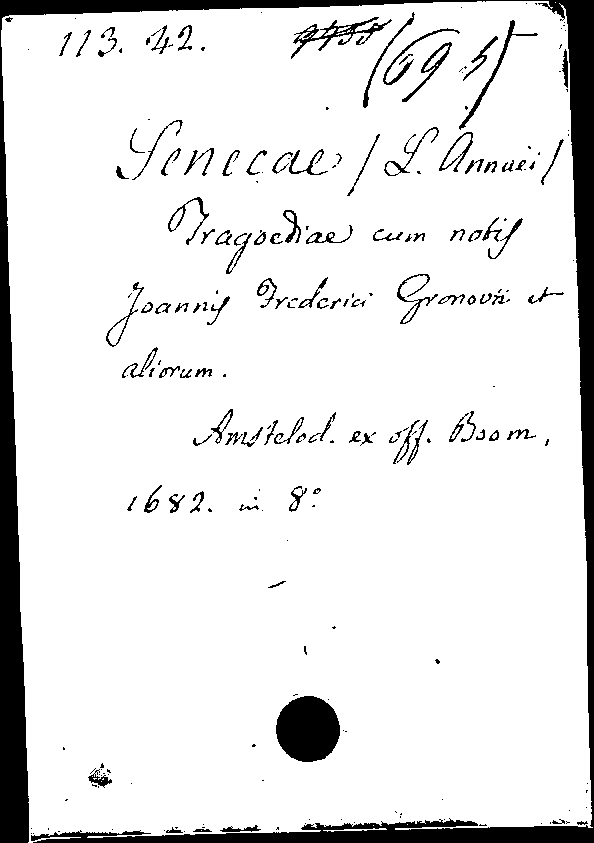 113. 42. (695)
Senecae / L. Annaei /
Tragoediae cum notis
Joannis Frederici Gronovii et
aliorum.
Amstelod. ex off. Boom,
1682. in 8°